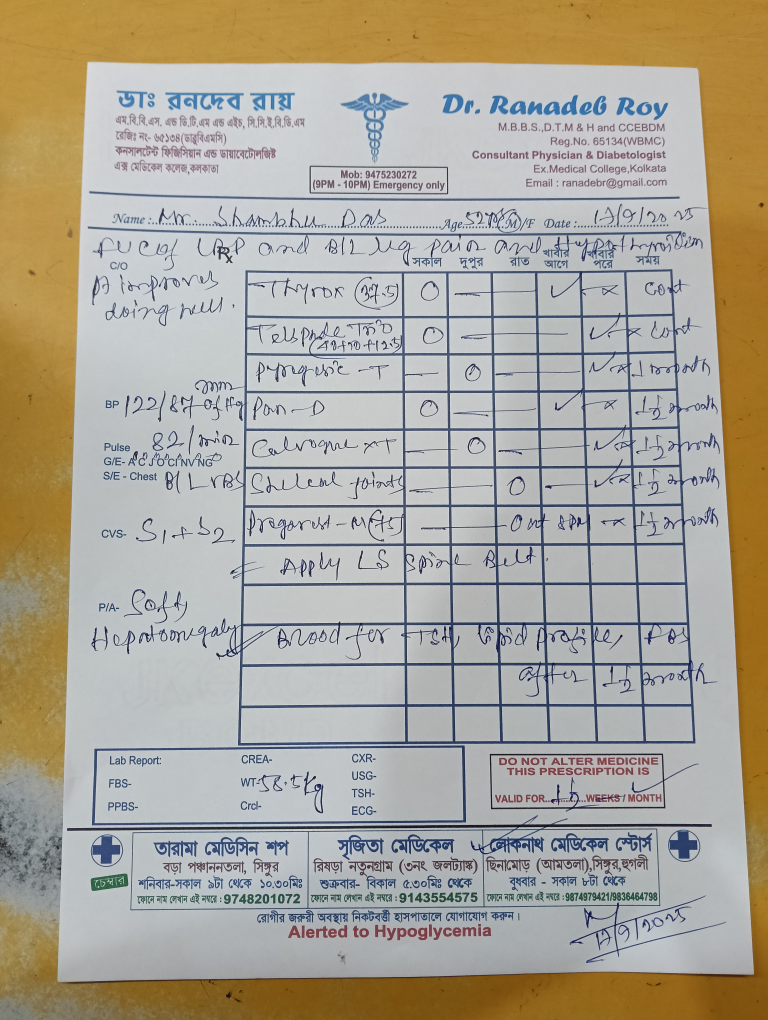 ডাঃ রনদেব রায়
এম.বি.বি.এস. এন্ড ডি.টি.এম এন্ড এইচ, সি.সি.ই.বি.ডি.এম
রেজিঃ নং- ৬৫১৩৪(ডাব্লুবিএমসি)
কনসালটেন্ট ফিজিসিয়ান এন্ড ডায়াবেটোলজিষ্ট
এক্স মেডিকেল কলেজ,কলকাতা
Mob: 9475230272
(9PM - 10PM) Emergency only
Dr. Ranadeb Roy
M.B.B.S.,D.T.M & H and CCEBDM
Reg.No. 65134(WBMC)
Consultant Physician & Diabetologist
Ex.Medical College,Kolkata
Email : ranadebr@gmail.com
Name : Mr. Shambhu Das Age 52 M/F Date : 17/9/2025
and B/L leg pain and Hypothyroidism
C/O Rx সকাল দুপুর রাত খাবার আগে খাবার পরে সময়
improves
doing well.
Thyrox (37.5) Cont
(40+10+12.5) Cont
Pyregesic - T 1 month
BP 122/87 mm of Hg Pan - D 1 1/2 month
Pulse 82/min XT 1 1/2 month
G/E- A C J O CI NV NG
S/E - Chest B/L VBS joints 1 1/2 month
CVS- S1 + S2 - M (75) at 8PM 1 1/2 month
Apply LS Spine Belt.
P/A- Soft
Hepatomegaly Blood for TSH, Lipid Profile, FBS
after 1 1/2 month
Lab Report: CREA- CXR-
FBS- WT- 58.5 kg USG-
PPBS- Crcl- TSH-
ECG-
DO NOT ALTER MEDICINE
THIS PRESCRIPTION IS
VALID FOR 1 1/2 WEEKS / MONTH
চেম্বার
তারামা মেডিসিন শপ
বড়া পঞ্চাননতলা, সিঙ্গুর
শনিবার-সকাল ৯টা থেকে ১০.৩০মিঃ
ফোনে নাম লেখান এই নম্বরে : 9748201072
সৃজিতা মেডিকেল
রিষড়া নতুনগ্রাম (৩নং জলট্যাঙ্ক)
শুক্রবার- বিকাল ৫.৩০মিঃ থেকে
ফোনে নাম লেখান এই নম্বরে : 9143554575
লোকনাথ মেডিকেল স্টোর্স
ছিনামোড় (আমতলা),সিঙ্গুর,হুগলী
বুধবার - সকাল ৮টা থেকে
ফোনে নাম লেখান এই নম্বরে : 9874979421/9836464798
রোগীর জরুরী অবস্থায় নিকটবর্ত্তী হাসপাতালে যোগাযোগ করুন।
Alerted to Hypoglycemia
17/9/2025